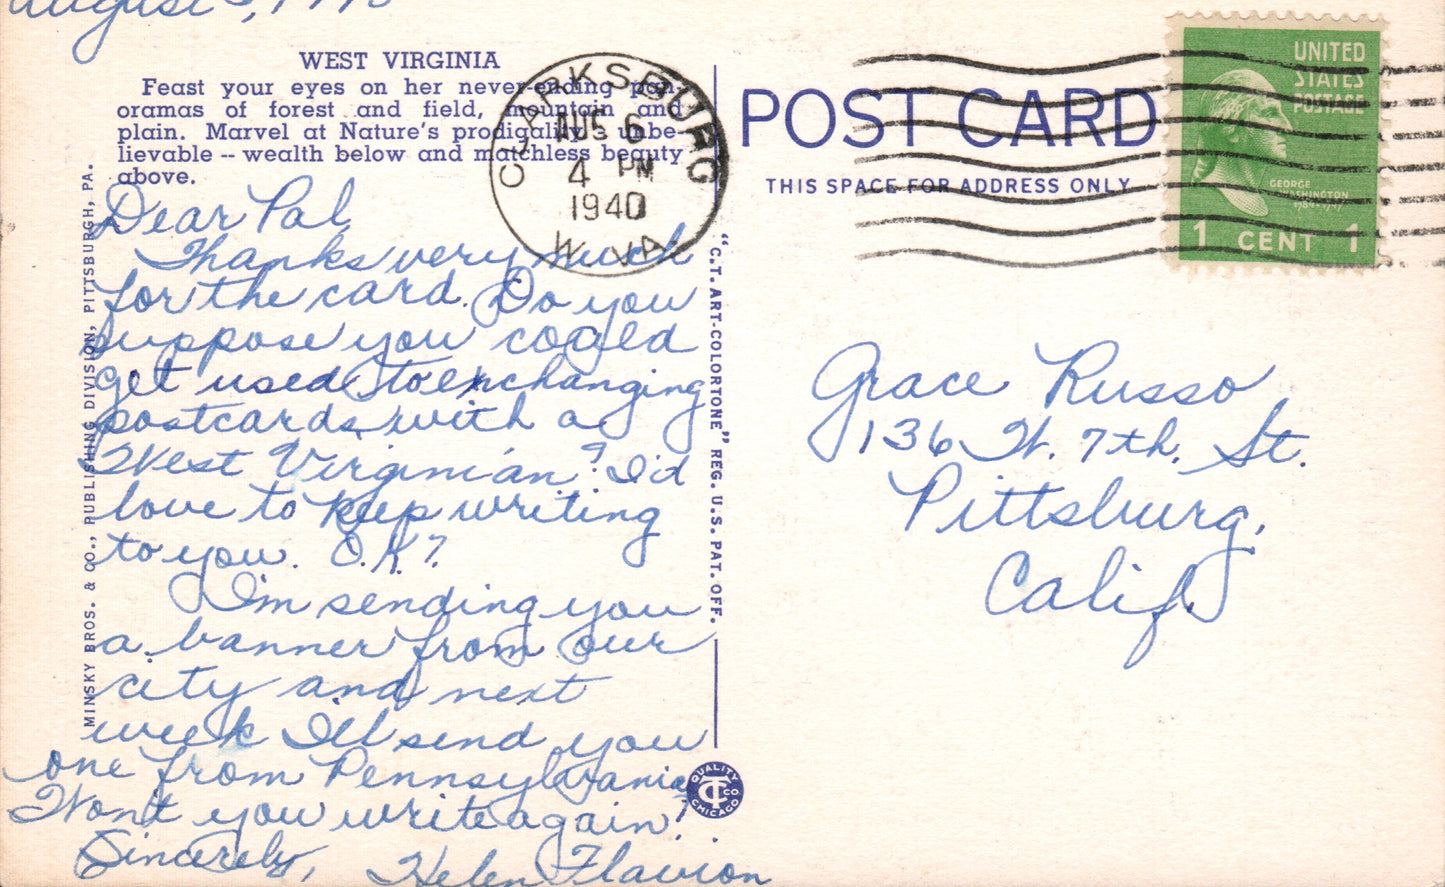 August 5, 1940
WEST VIRGINIA
Feast your eyes on her never-ending pan-
oramas of forest and field, mountain and
plain. Marvel at Nature's prodigality's unbe-
lievable -- wealth below and matchless beauty
above.
Dear Pal,
Thanks very much
for the card. Do you
suppose you could
get used to exchanging
postcards with a
West Virginian? I'd
love to keep writing
to you. O.K.?
I'm sending you
a banner from our
city and next
week I'll send you
one from Pennsylvania
Won't you write again?
Sincerely,
Helen Flavion
MINSKY BROS. & CO., PUBLISHING DIVISION, PITTSBURGH, PA.
"C.T. ART-COLORTONE" REG. U.S. PAT. OFF.
QUALITY
CT CO
CHICAGO
CLARKSBURG
AUG 6
4 PM
1940
W. VA.
POST CARD
THIS SPACE FOR ADDRESS ONLY
UNITED
STATES
POSTAGE
GEORGE
WASHINGTON
1 CENT 1
Grace Russo
136 W. 7th. St.
Pittsburg,
Calif.